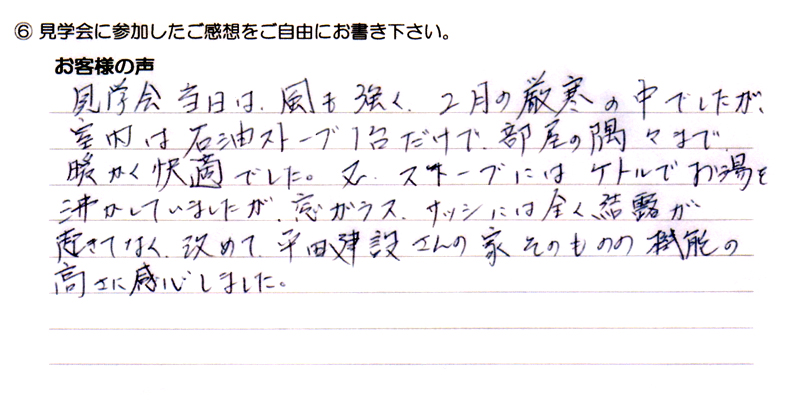 ⑥ 見学会に参加したご感想をご自由にお書き下さい。
お客様の声
見学会当日は、風も強く、2月の厳寒の中でしたが、
室内は石油ストーブ1台だけで、部屋の隅々まで
暖かく快適でした。又、ストーブにはケトルでお湯を
沸かしていましたが、窓ガラス、サッシには全く結露が
起きてなく、改めて、平田建設さんの家そのものの機能の
高さに感心しました。